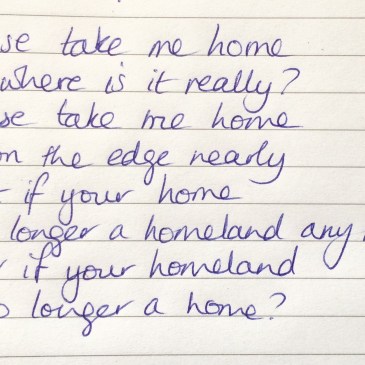 se take me home
where is it really?
se take me home
the edge nearly
if your home
longer a homeland any
if your homeland
longer a home?